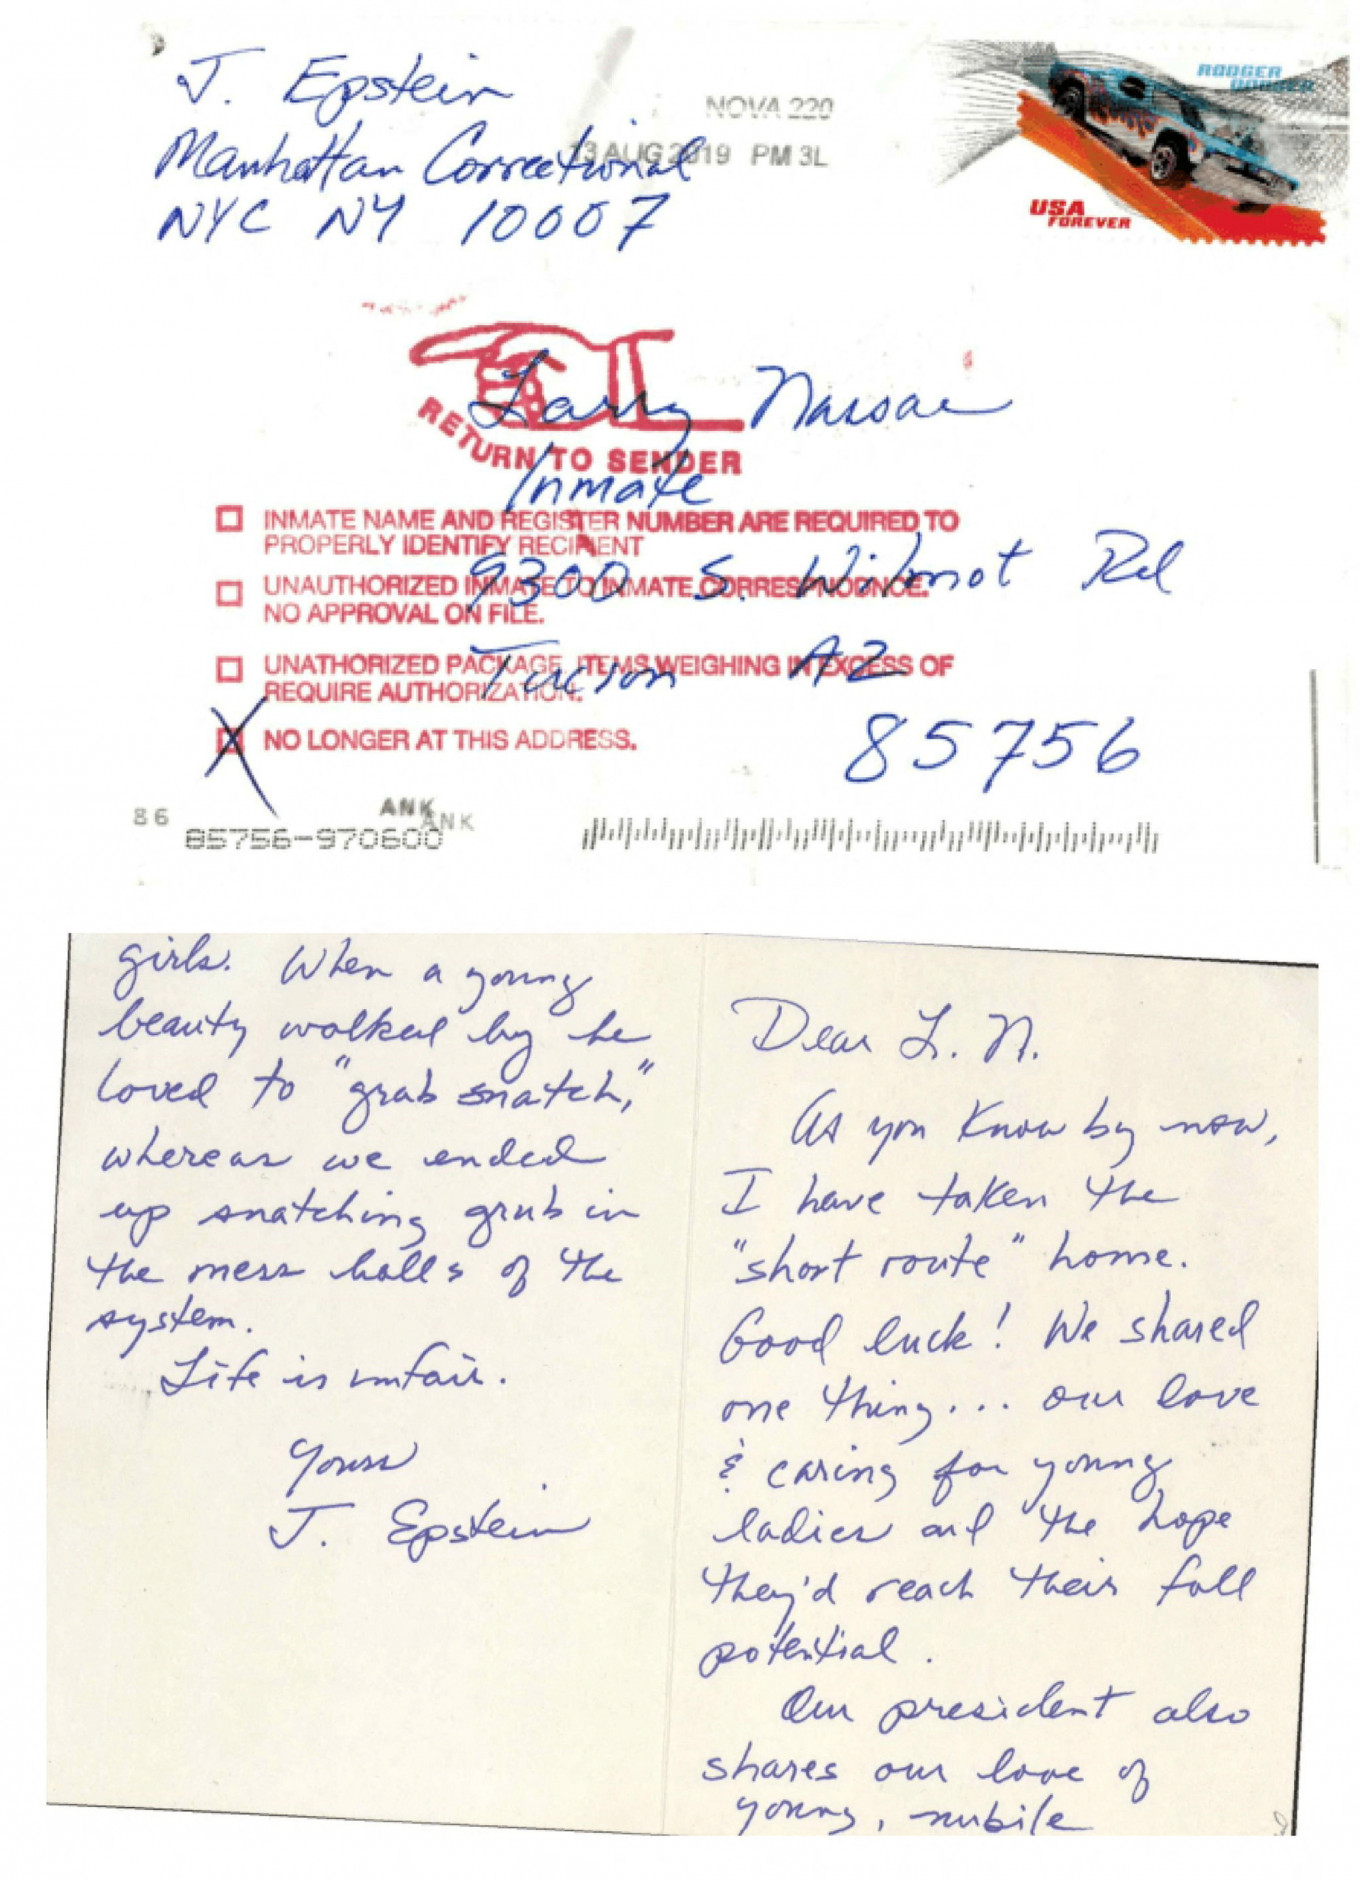 J. Epstein
Manhattan Correctional
NYC NY 10007
NOVA 220
13 AUG 2019 PM 3L
RODGER
DODGER
USA
FOREVER
Larry Nassar
RETURN TO SENDER
Inmate
INMATE NAME AND REGISTER NUMBER ARE REQUIRED TO
PROPERLY IDENTIFY RECIPIENT
9300 S. Wilmot Rd
UNAUTHORIZED INMATE TO INMATE CORRESPNODNCE.
NO APPROVAL ON FILE.
Tucson AZ
UNATHORIZED PACKAGE, ITEMS WEIGHING IN EXCESS OF
REQUIRE AUTHORIZATION.
85756
X NO LONGER AT THIS ADDRESS.
86
ANK
ANK
85756-970600
Dear L. N.
As you know by now,
I have taken the
"short route" home.
Good luck! We shared
one thing... our love
& caring for young
ladies and the hope
they'd reach their full
potential.
Our president also
shares our love of
young, nubile
girls. When a young
beauty walked by he
loved to "grab snatch,"
whereas we ended
up snatching grub in
the mess halls of the
system.
Life is unfair.
Yours
J. Epstein